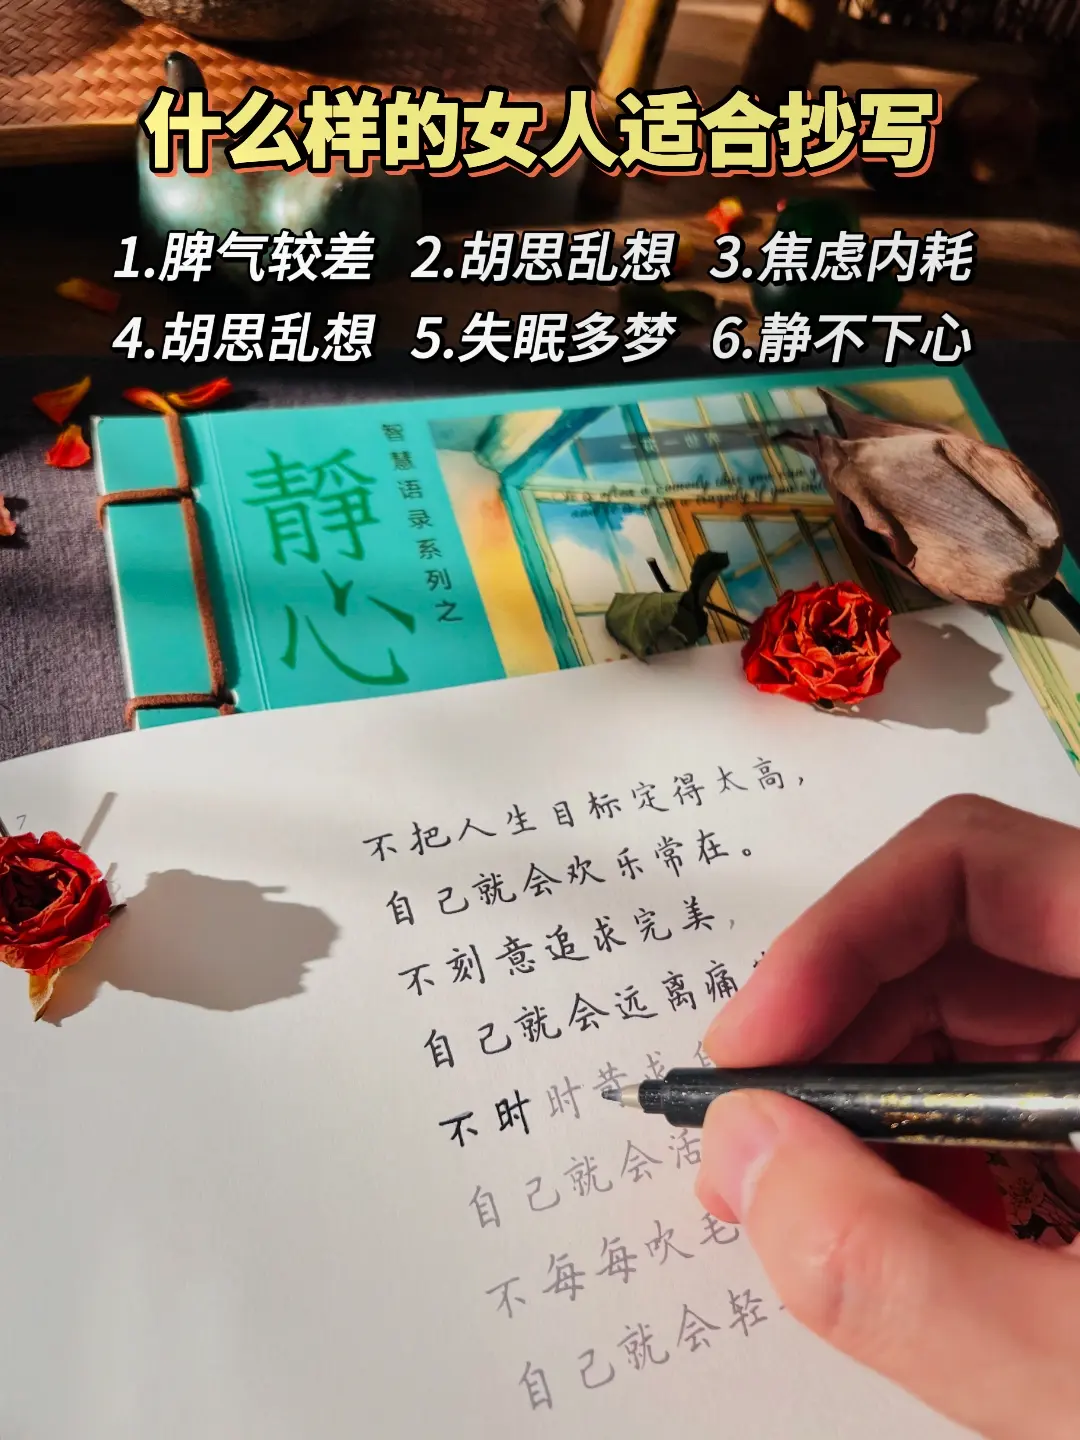 什么样的女人适合抄写
1.脾气较差 2.胡思乱想 3.焦虑内耗
4.胡思乱想 5.失眠多梦 6.静不下心
智慧语录系列之
靜心
7
不把人生目标定得太高，
自己就会欢乐常在。
不刻意追求完美，
自己就会远离痛
不时时苛求自
自己就会活
不每每吹毛
自己就会轻